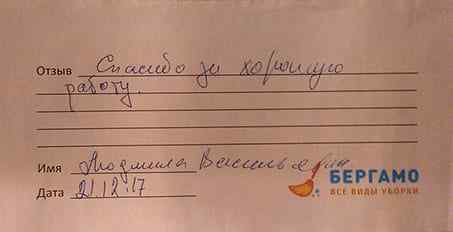 Отзыв Спасибо за хорошую
работу.
Имя Людмила Васильевна
Дата 21.12.17
БЕРГАМО
ВСЕ ВИДЫ УБОРКИ